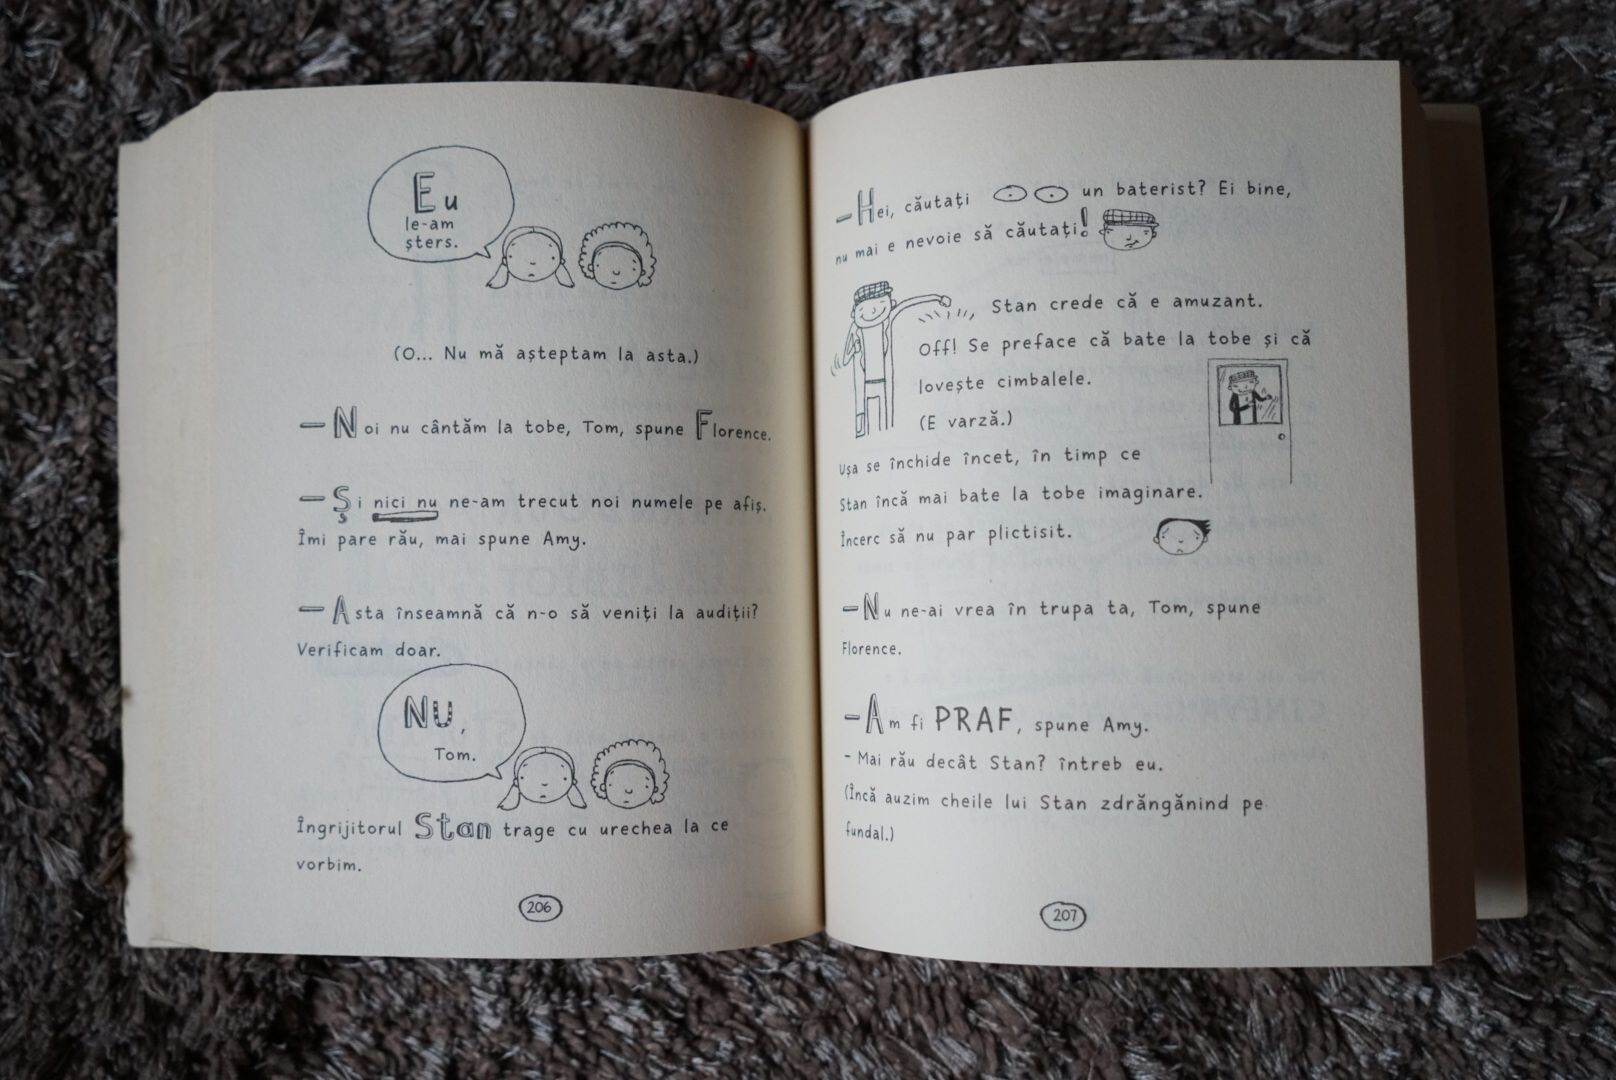 Eu
le-am
șters.
(O... Nu mă așteptam la asta.)
— Noi nu cântăm la tobe, Tom, spune Florence.
— Și nici nu ne-am trecut noi numele pe afiș.
Îmi pare rău, mai spune Amy.
— Asta înseamnă că n-o să veniți la audiții?
Verificam doar.
NU,
Tom.
Îngrijitorul Stan trage cu urechea la ce
vorbim.
206
— Hei, căutați un baterist? Ei bine,
nu mai e nevoie să căutați!
Stan crede că e amuzant.
Off! Se preface că bate la tobe și că
lovește cimbalele.
(E varză.)
Ușa se închide încet, în timp ce
Stan încă mai bate la tobe imaginare.
Încerc să nu par plictisit.
— Nu ne-ai vrea în trupa ta, Tom, spune
Florence.
— Am fi PRAF, spune Amy.
- Mai rău decât Stan? întreb eu.
(Încă auzim cheile lui Stan zdrăngănind pe
fundal.)
207